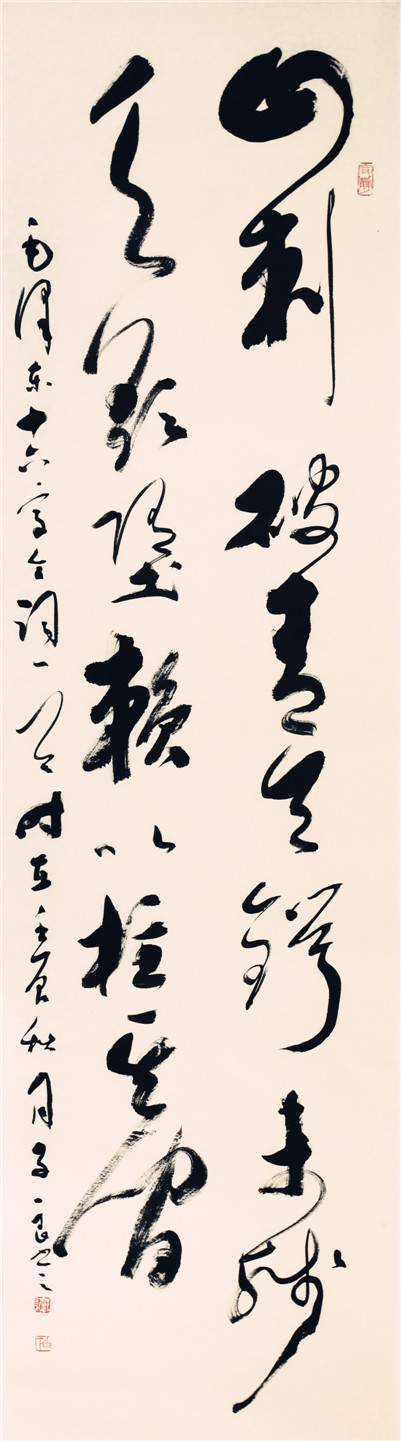 山刺破青天鍔未殘
天欲墮賴以柱其間
毛澤東十六字令詞一首時在壬寅秋月子良書之